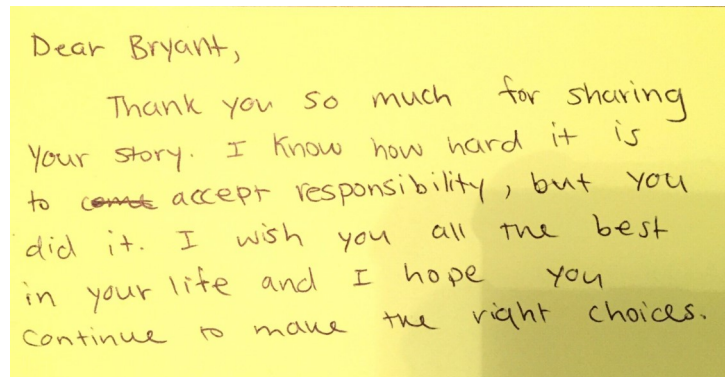 Dear Bryant,
Thank you so much for sharing
your story. I know how hard it is
to accept responsibility, but you
did it. I wish you all the best
in your life and I hope you
continue to make the right choices.